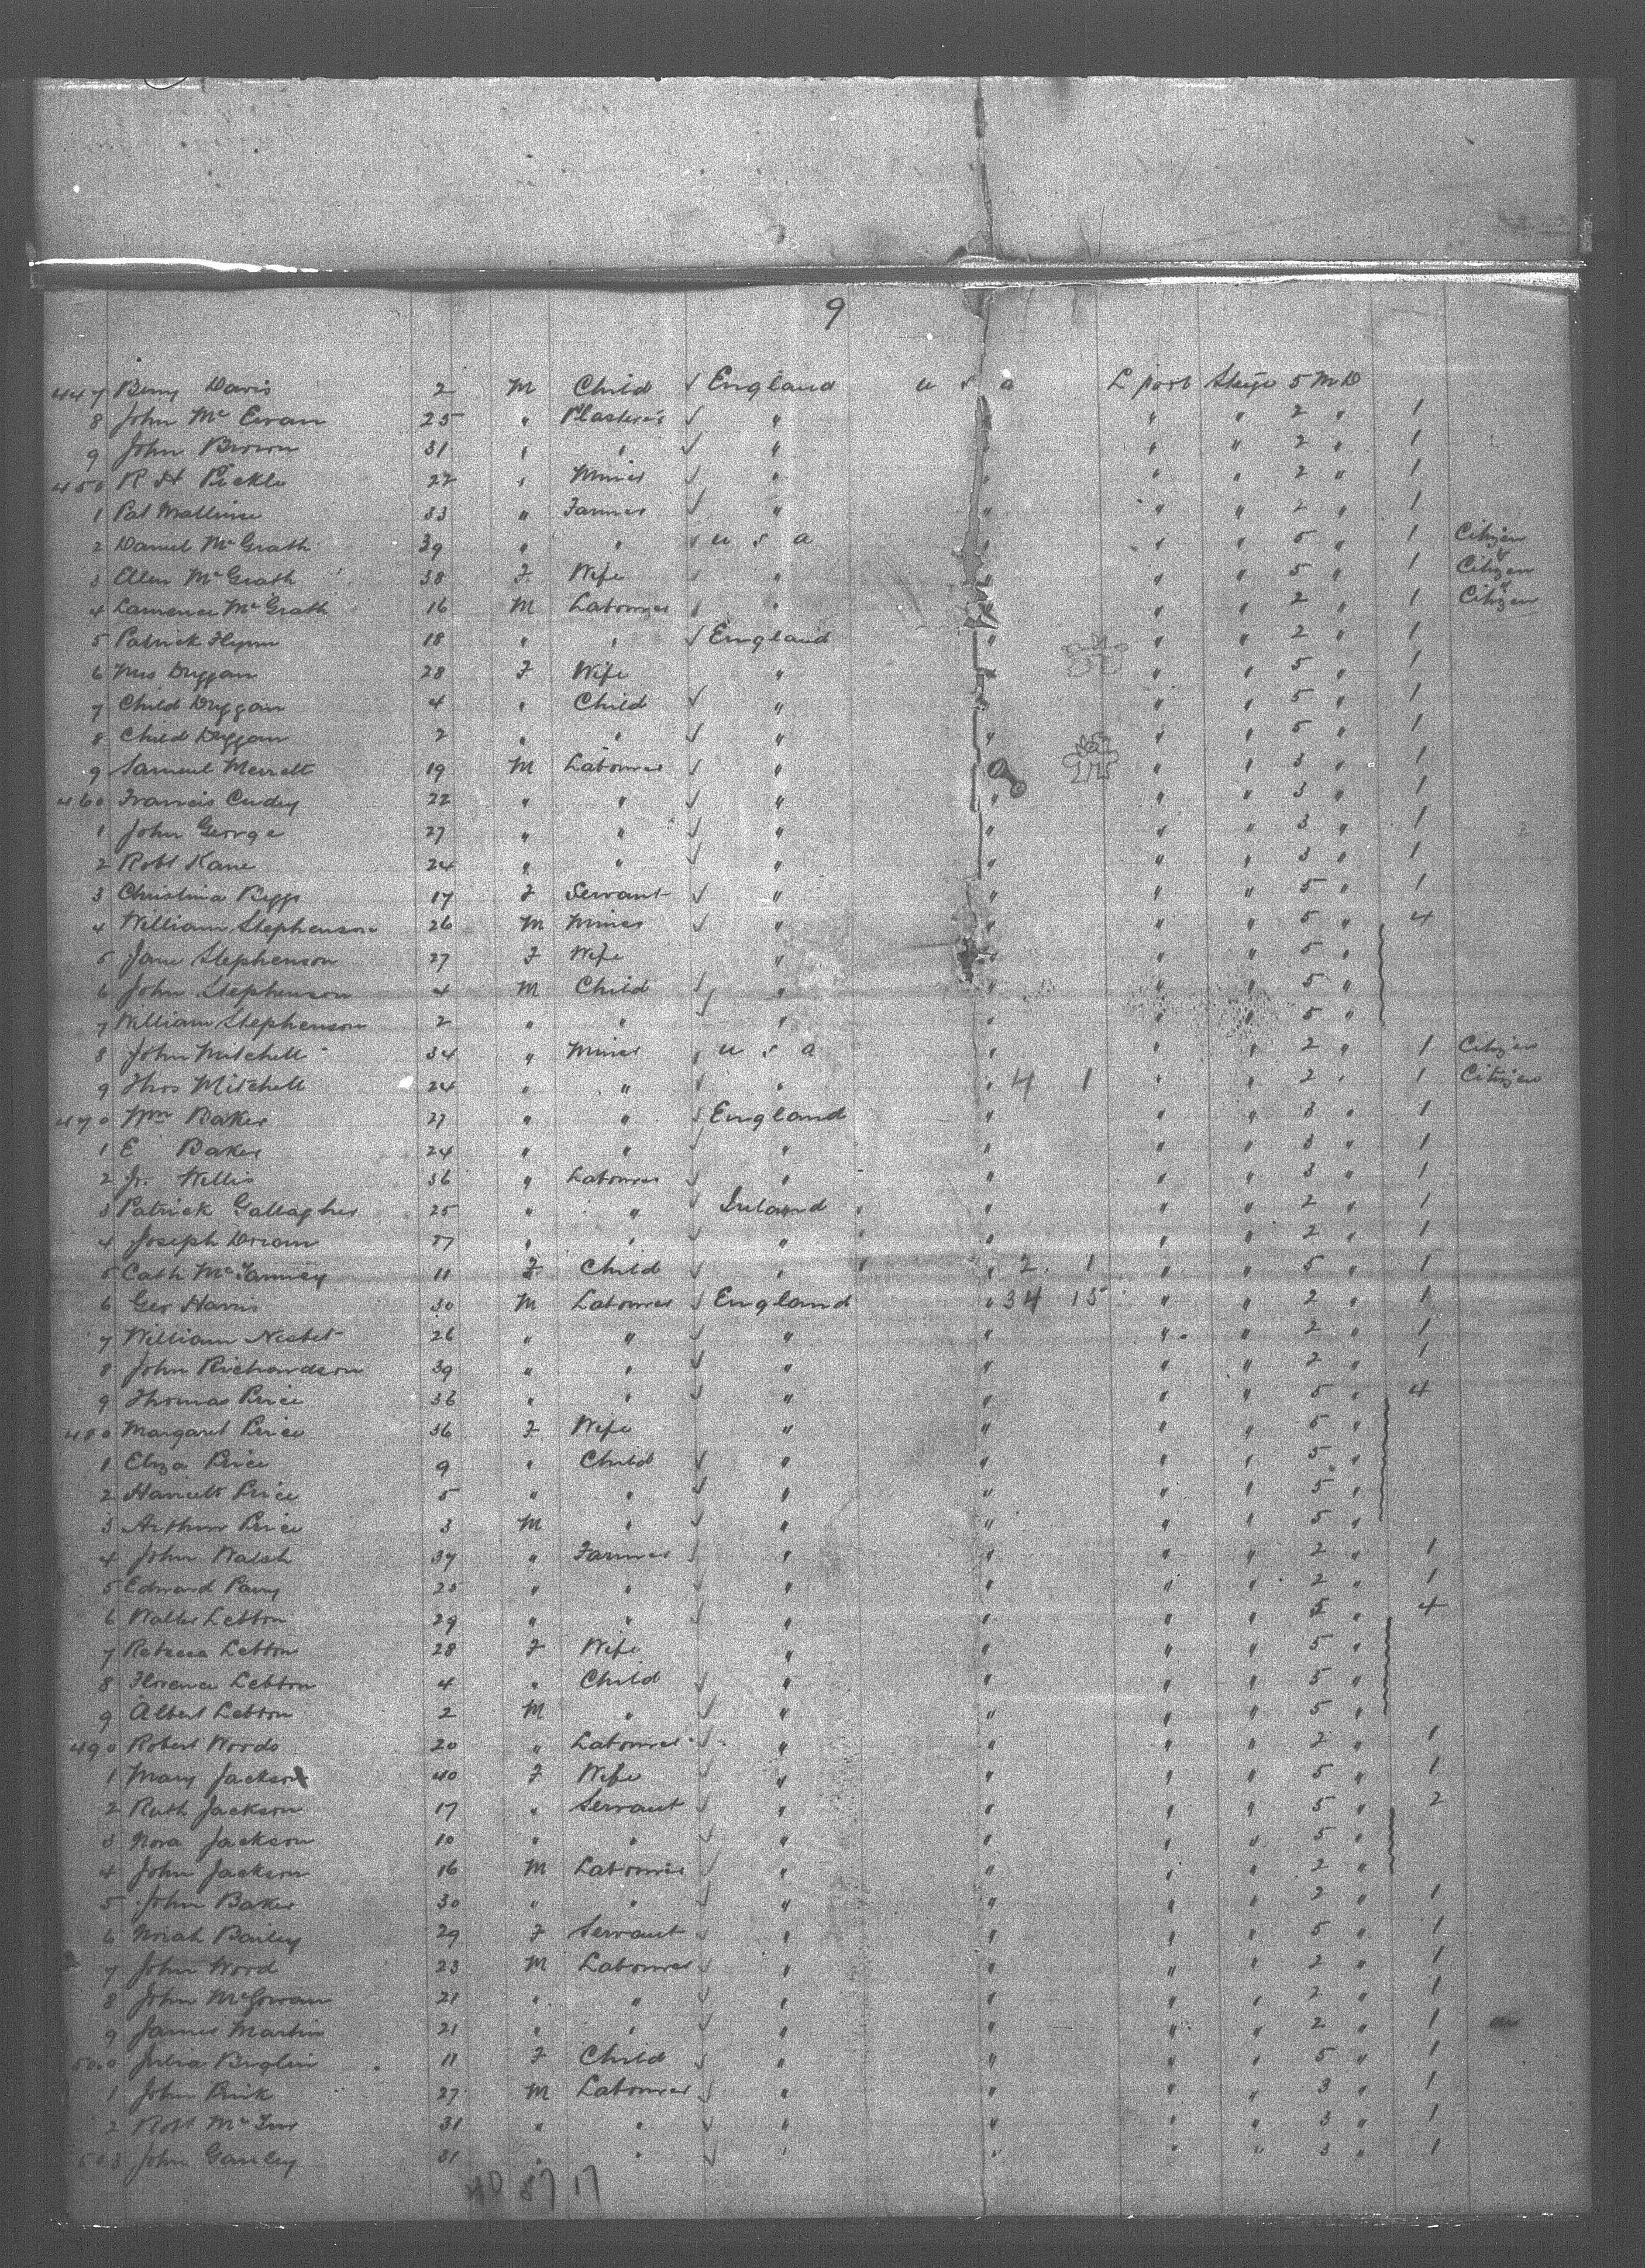 9
447 Davis 2 M Child ✓ England u s a L pool Steige 5 M D
8 John Mc Ewan 25 " Plasterer ✓ " " " " 2 " 1
9 John Brown 31 " " ✓ " " " " 2 " 1
450 R H Pickle 22 " Miner ✓ " " " " 2 " 1
1 Pat 33 " Farmer ✓ " " " " 2 " 1
2 Daniel McGrath 39 " " u s a " " " 5 " 1 Citizen
3 Ellen McGrath 38 F Wife " " " " 5 " 1 Citizen
4 Lawrence McGrath 16 M Labourer " " " " 2 " 1 Citizen
5 Patrick Flynn 18 " " ✓ England " " " 2 " 1
6 Mrs Duggan 28 F Wife " " " " 5 " 1
7 Child Duggan 4 " Child ✓ " " " " 5 " 1
8 Child Duggan 2 " " ✓ " " " " 5 " 1
9 Samuel Merrett 19 M Labourer ✓ " " " " 3 " 1
460 Francis 22 " " ✓ " " " " 3 " 1
1 John George 27 " " ✓ " " " " 3 " 1
2 Robt Kane 24 " " ✓ " " " " 3 " 1
3 Christina Biggs 17 F Servant ✓ " " " " 5 " 1
4 William Stephenson 26 M Miner ✓ " " " " 5 " 4
5 Jane Stephenson 27 F Wife " " " " 5 "
6 John Stephenson 4 M Child ✓ " " " " 5 "
7 William Stephenson 2 " " ✓ " " " " 5 "
8 John Mitchell 34 " Miner u s a " " " 2 " 1 Citizen
9 Thos Mitchell 24 " " ✓ " " 4 1 " " 2 " 1 Citizen
470 Wm Baker 27 " " ✓ England " " " 3 " 1
1 E Baker 24 " " ✓ " " " " 3 " 1
2 Willis 36 " Labourer ✓ " " " " 3 " 1
3 Patrick Gallagher 25 " " ✓ Ireland " " " 2 " 1
4 Joseph Doran 27 " " ✓ " " " " 2 " 1
5 Cath 11 F Child ✓ " " 2 1 " " 5 " 1
6 Geo Harris 30 M Labourer ✓ England " 34 15 " " 2 " 1
7 William Nesbet 26 " " ✓ " " " " 2 " 1
8 John Richardson 39 " " ✓ " " " " 2 " 1
9 Thomas Price 36 " " ✓ " " " " 5 " 4
480 Margaret Price 36 F Wife " " " " 5 "
1 Eliza Price 9 " Child ✓ " " " " 5 "
2 Harriett Price 5 " " ✓ " " " " 5 "
3 Arthur Price 3 M " ✓ " " " " 5 "
4 John Walsh 37 " Farmer ✓ " " " " 2 " 1
5 Edward Parry 25 " " ✓ " " " " 2 " 1
6 Walter Letton 29 " " ✓ " " " " 5 " 4
7 Rebecca Letton 28 F Wife " " " " 5 "
8 Florence Letton 4 " Child ✓ " " " " 5 "
9 Albert Letton 2 M " ✓ " " " " 5 "
490 Robert Woods 20 " Labourer ✓ " " " " 2 " 1
1 Mary Jackson 40 F Wife ✓ " " " " 5 " 1
2 Ruth Jackson 17 " Servant ✓ " " " " 5 " 2
3 Nora Jackson 10 " " ✓ " " " " 5 "
4 John Jackson 16 M Labourer ✓ " " " " 2 "
5 John Baker 30 " " ✓ " " " " 2 " 1
6 Norah Bailey 29 F Servant ✓ " " " " 5 " 1
7 John Wood 23 M Labourer ✓ " " " " 2 " 1
8 John McGowan 21 " " ✓ " " " " 2 " 1
9 James Martin 21 " " ✓ " " " " 2 " 1
500 Julia 11 F Child ✓ " " " " 5 " 1
1 John 27 M Labourer ✓ " " " " 3 " 1
2 Robt 31 " " ✓ " " " " 3 " 1
503 John Ganley 31 " " ✓ " " " " 3 " 1
40 87 17